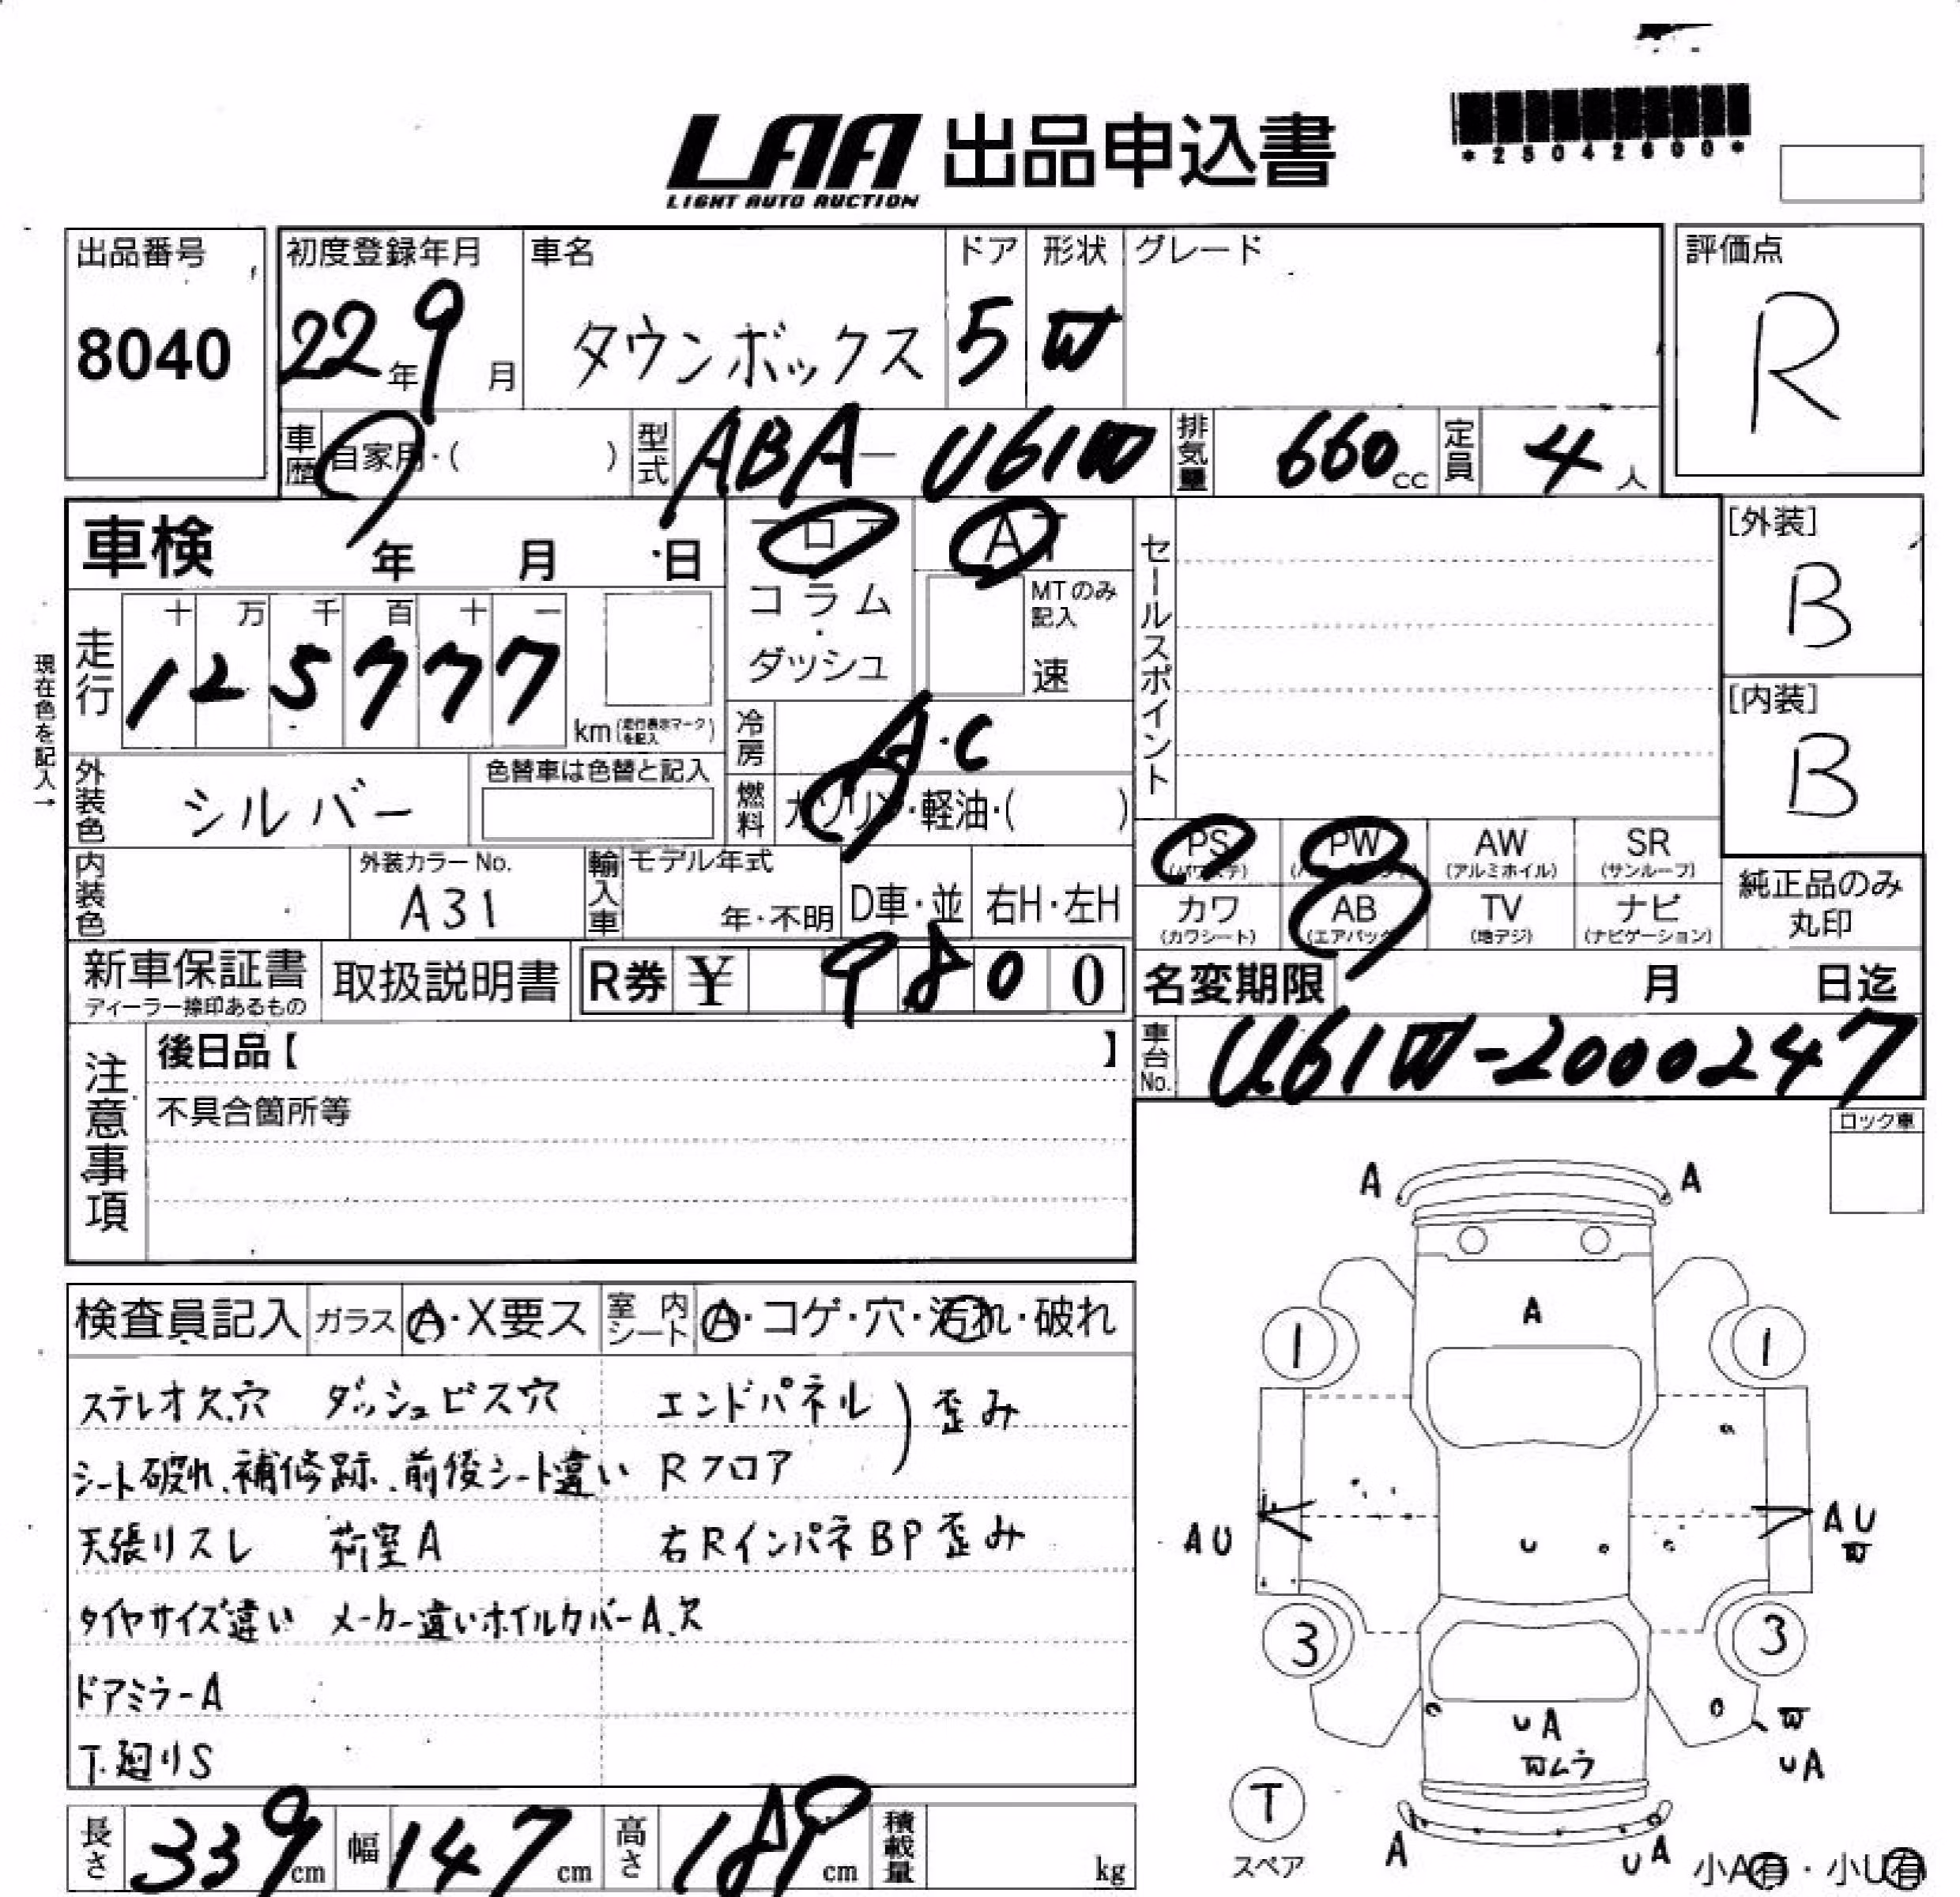 LAA 出品申込書
LIGHT AUTO AUCTION
*25042600*
出品番号
8040
初度登録年月
22年9月
車名
タウンボックス
ドア
5
形状
W
グレード
評価点
R
車歴
自家用・( )
型式
ABA-U61W
排気量
660cc
定員
4人
車検 年 月 日
フロア
コラム・ダッシュ
AT
MTのみ記入
速
セールスポイント
[外装]
B
[内装]
B
現在色を記入→
走行
十 万 千 百 十 一
1 2 5 7 7 7
km(走行表示マークを記入)
冷房
A・C
外装色
シルバー
色替車は色替と記入
燃料
ガソリン・軽油・( )
内装色
外装カラーNo.
A31
輸入車
モデル年式
年・不明
D車・並
右H・左H
PS
(パワステ)
PW
(パワーウインド)
AW
(アルミホイル)
SR
(サンルーフ)
カワ
(カワシート)
AB
(エアバック)
TV
(地デジ)
ナビ
(ナビゲーション)
純正品のみ丸印
新車保証書
ディーラー捺印あるもの
取扱説明書
R券 ¥ 9 8 0 0
名変期限 月 日迄
車台No.
U61W-2000247
注意事項
後日品【 】
不具合箇所等
ロック車
検査員記入
ガラス
A・X要ス
室内シート
A・コゲ・穴・汚れ・破れ
ステレオ欠.穴 ダッシュビス穴 エンドパネル ) 歪み
シート破れ、補修跡、前後シート違い Rフロア
天張リスレ 荷室A 右RインパネBP歪み
タイヤサイズ違い メーカー違いホイルカバーA.欠
ドアミラーA
T.廻りS
長さ
339cm
幅
147cm
高さ
189cm
積載量
kg
A A
A
1 1
AU
U
AU
W
3 3
UA
Wムラ
W
UA
T
スペア
A
UA
小A有・小U有